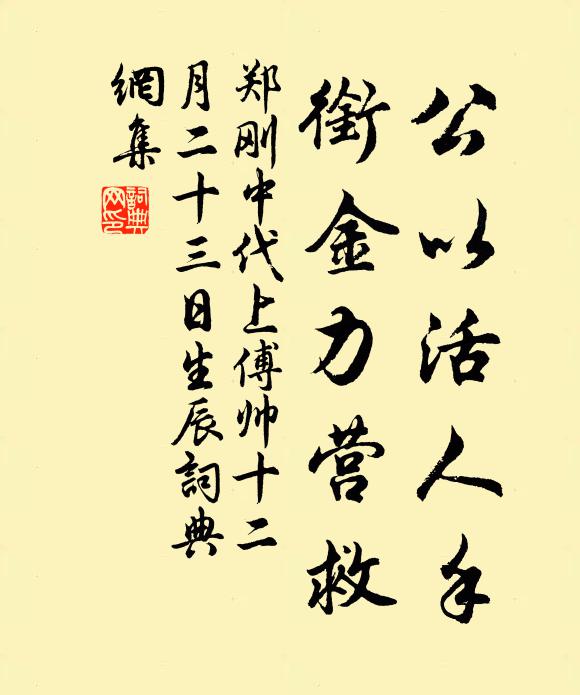 公以活人手
衔金力营救
郑刚中代上傅帅十二
月二十三日生辰詞典
網集
詞典網印